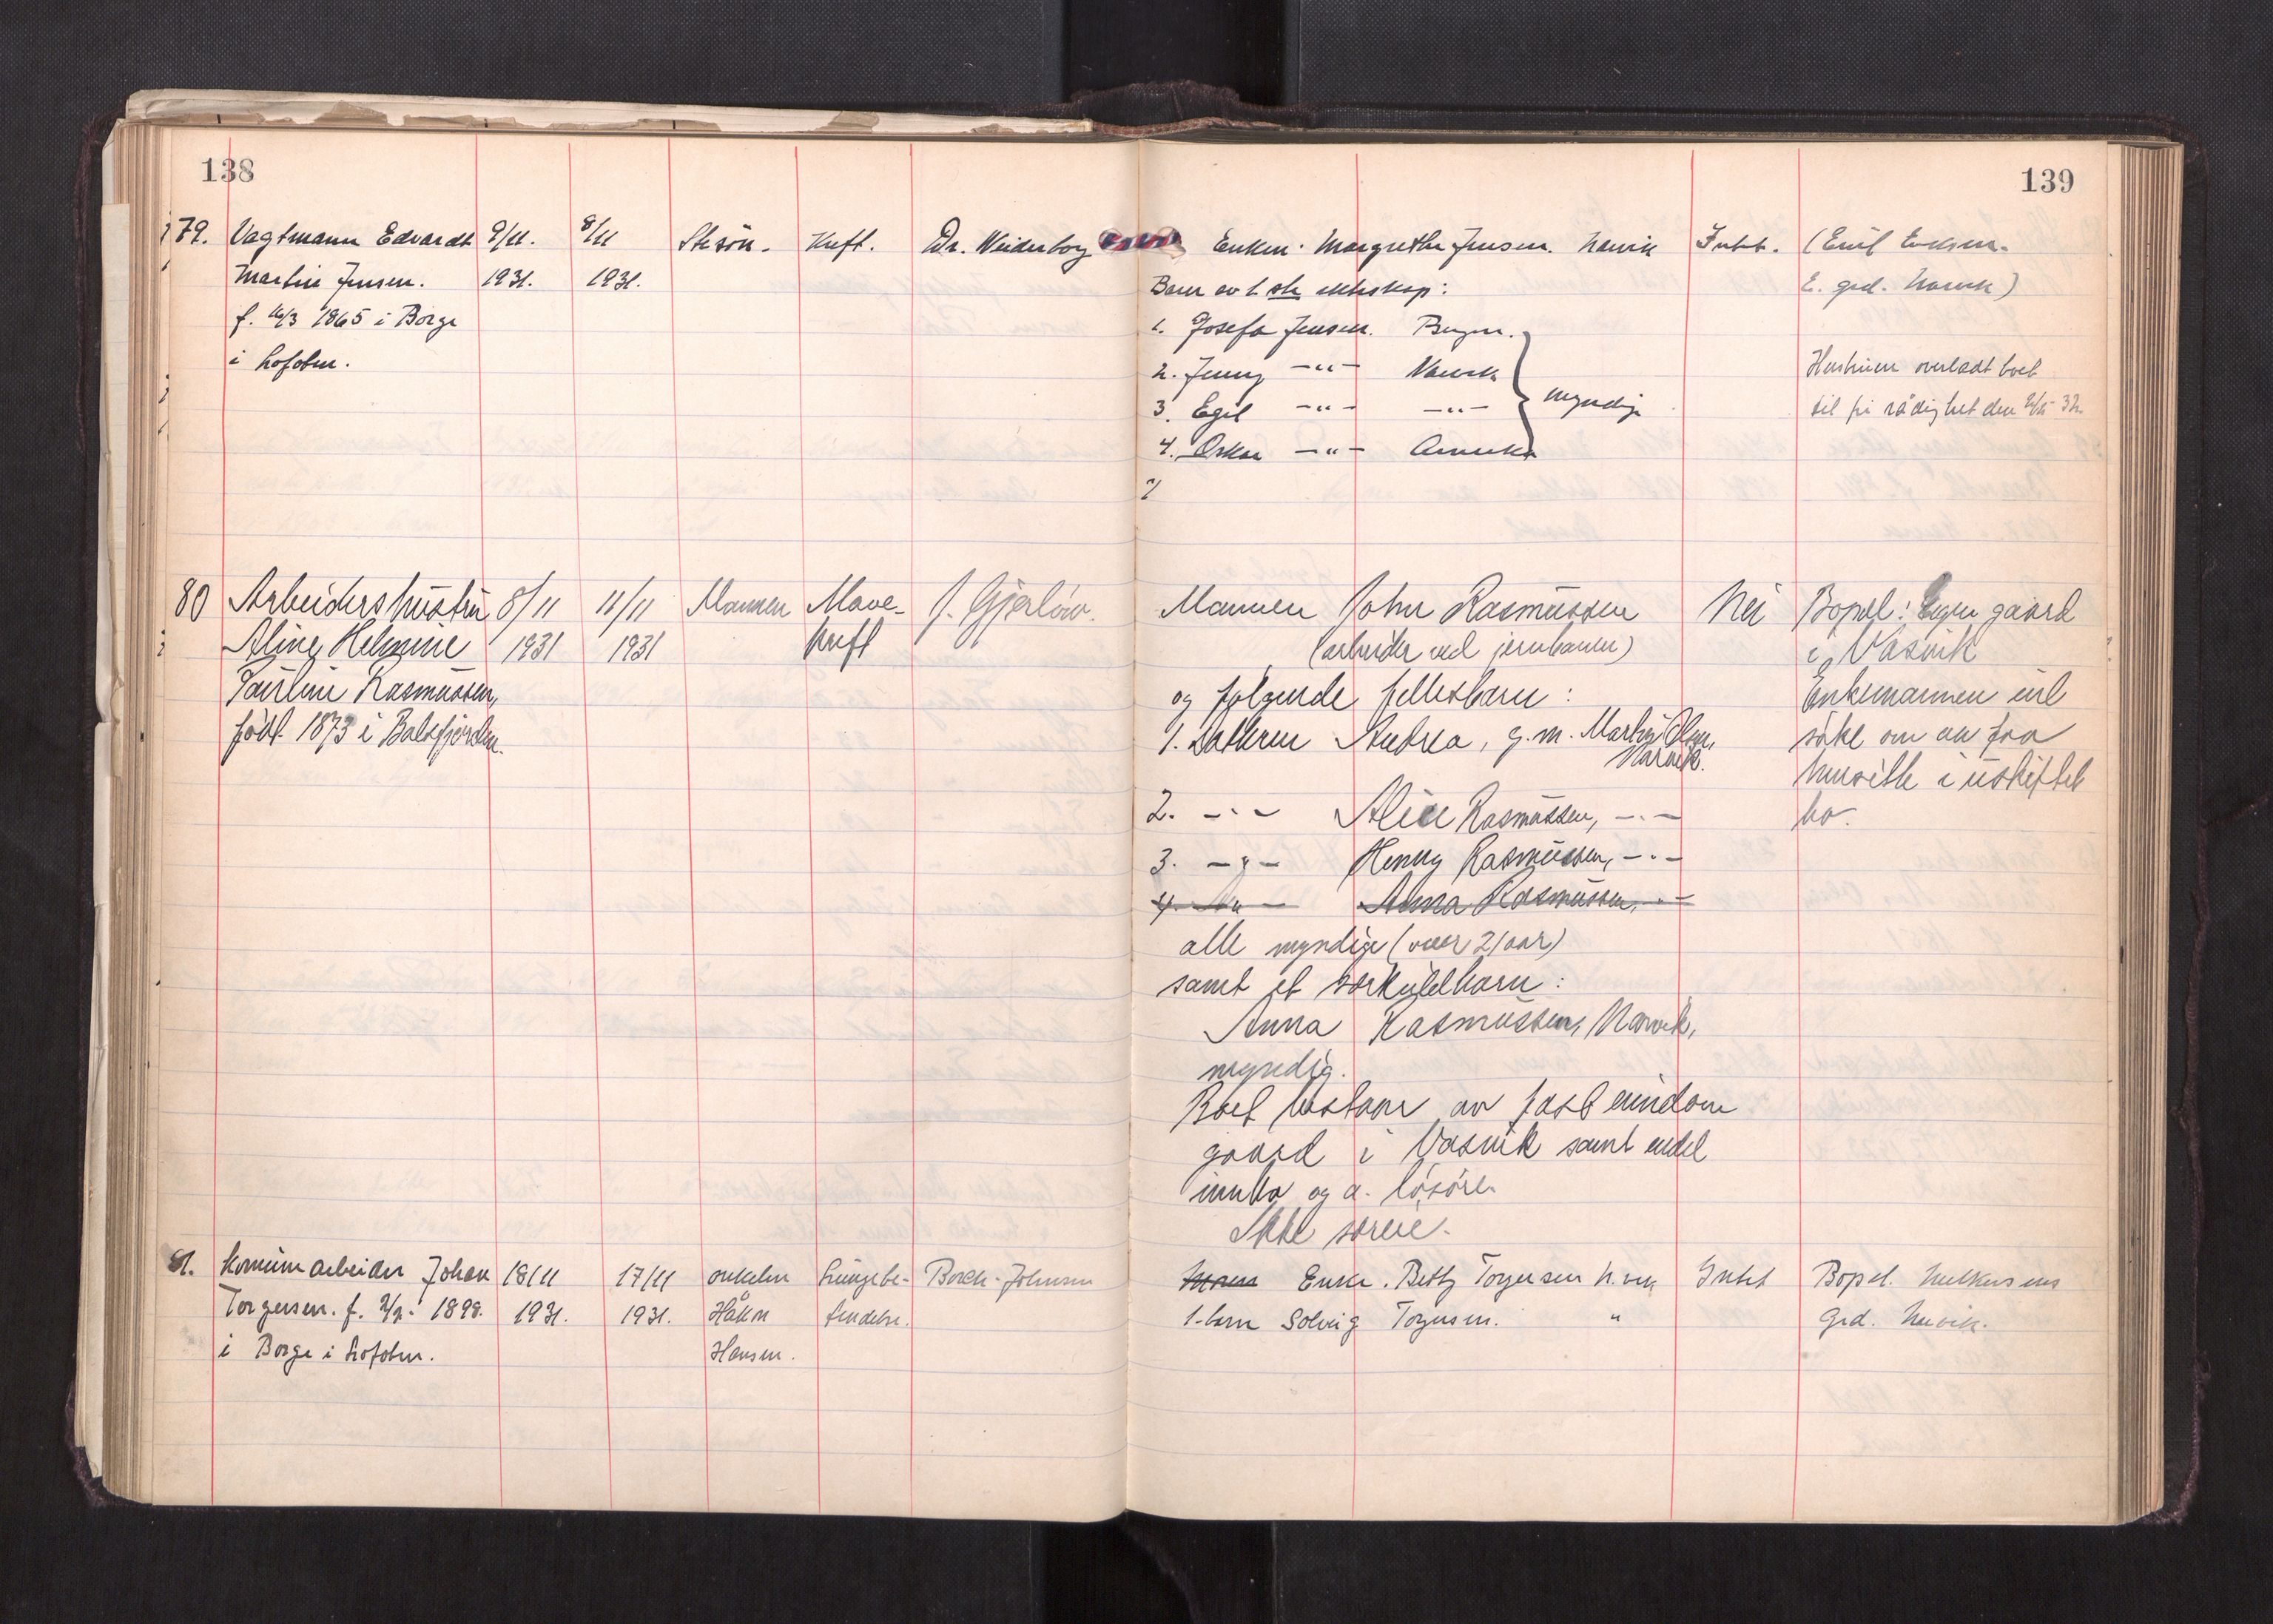 138
79. Vagtmann Edvardt 9/11. 8/11 Stesön. Kreft. Dr. Weiderborg
Martin Jensen. 1931. 1931.
f. 16/3 1865 i Borge
i Lofoten.
80 Arbeidershustru 8/11 11/11 Mannen Mave- J. Gjerløw.
Aline Helmine 1931 1931 kreft
Pauline Rasmussen,
født 1873 i Balsfjorden.
81. Komunearbeider Johan 18/11 17/11 onkelen Lungebe- Borch-Johnsen
Torgersen. f. 2/9. 1898. 1931. 1931. Håkon tendelse.
i Borge i Lofoten. Hansen.
139
Enken. Margrethe Jensen. Narvik Intet. (Emil Eriksen.
Barn av 1ste ekteskap: E. grd. Narvik)
1. Josefa Jensen. Bergen.
2. Jenny -"- Narvik Hustruen overladt boet
3. Egil -"- -"- myndige til fri rådighet den 32.
4. Oskar -"- Amerika
Mannen John Rasmussen Nei Bopæl: Egen gaard
(arbeider ved jernbanen) i Vasvik
og følgende fellesbarn: Enkemannen vil
1. Datteren Andrea, g.m. Martin Olsen, søke om aa faa
Narvik. hensitte i uskiftet
2. -"- Alice Rasmussen, -"- bo.
3. -"- Henny Rasmussen, -"-
4. -"- Anna Rasmussen, -"-
alle myndige (over 21 aar)
samt et særkuldbarn:
Anna Rasmussen, Narvik,
myndig.
Boet bestaar av fast eiendom
gaard i Vasvik samt endel
innbo og a. løsøre.
Ikke særeie.
Enke. Betty Torgersen N.vik Intet Bopel.
1. barn Solveig Torgersen. " Grd. Narvik.